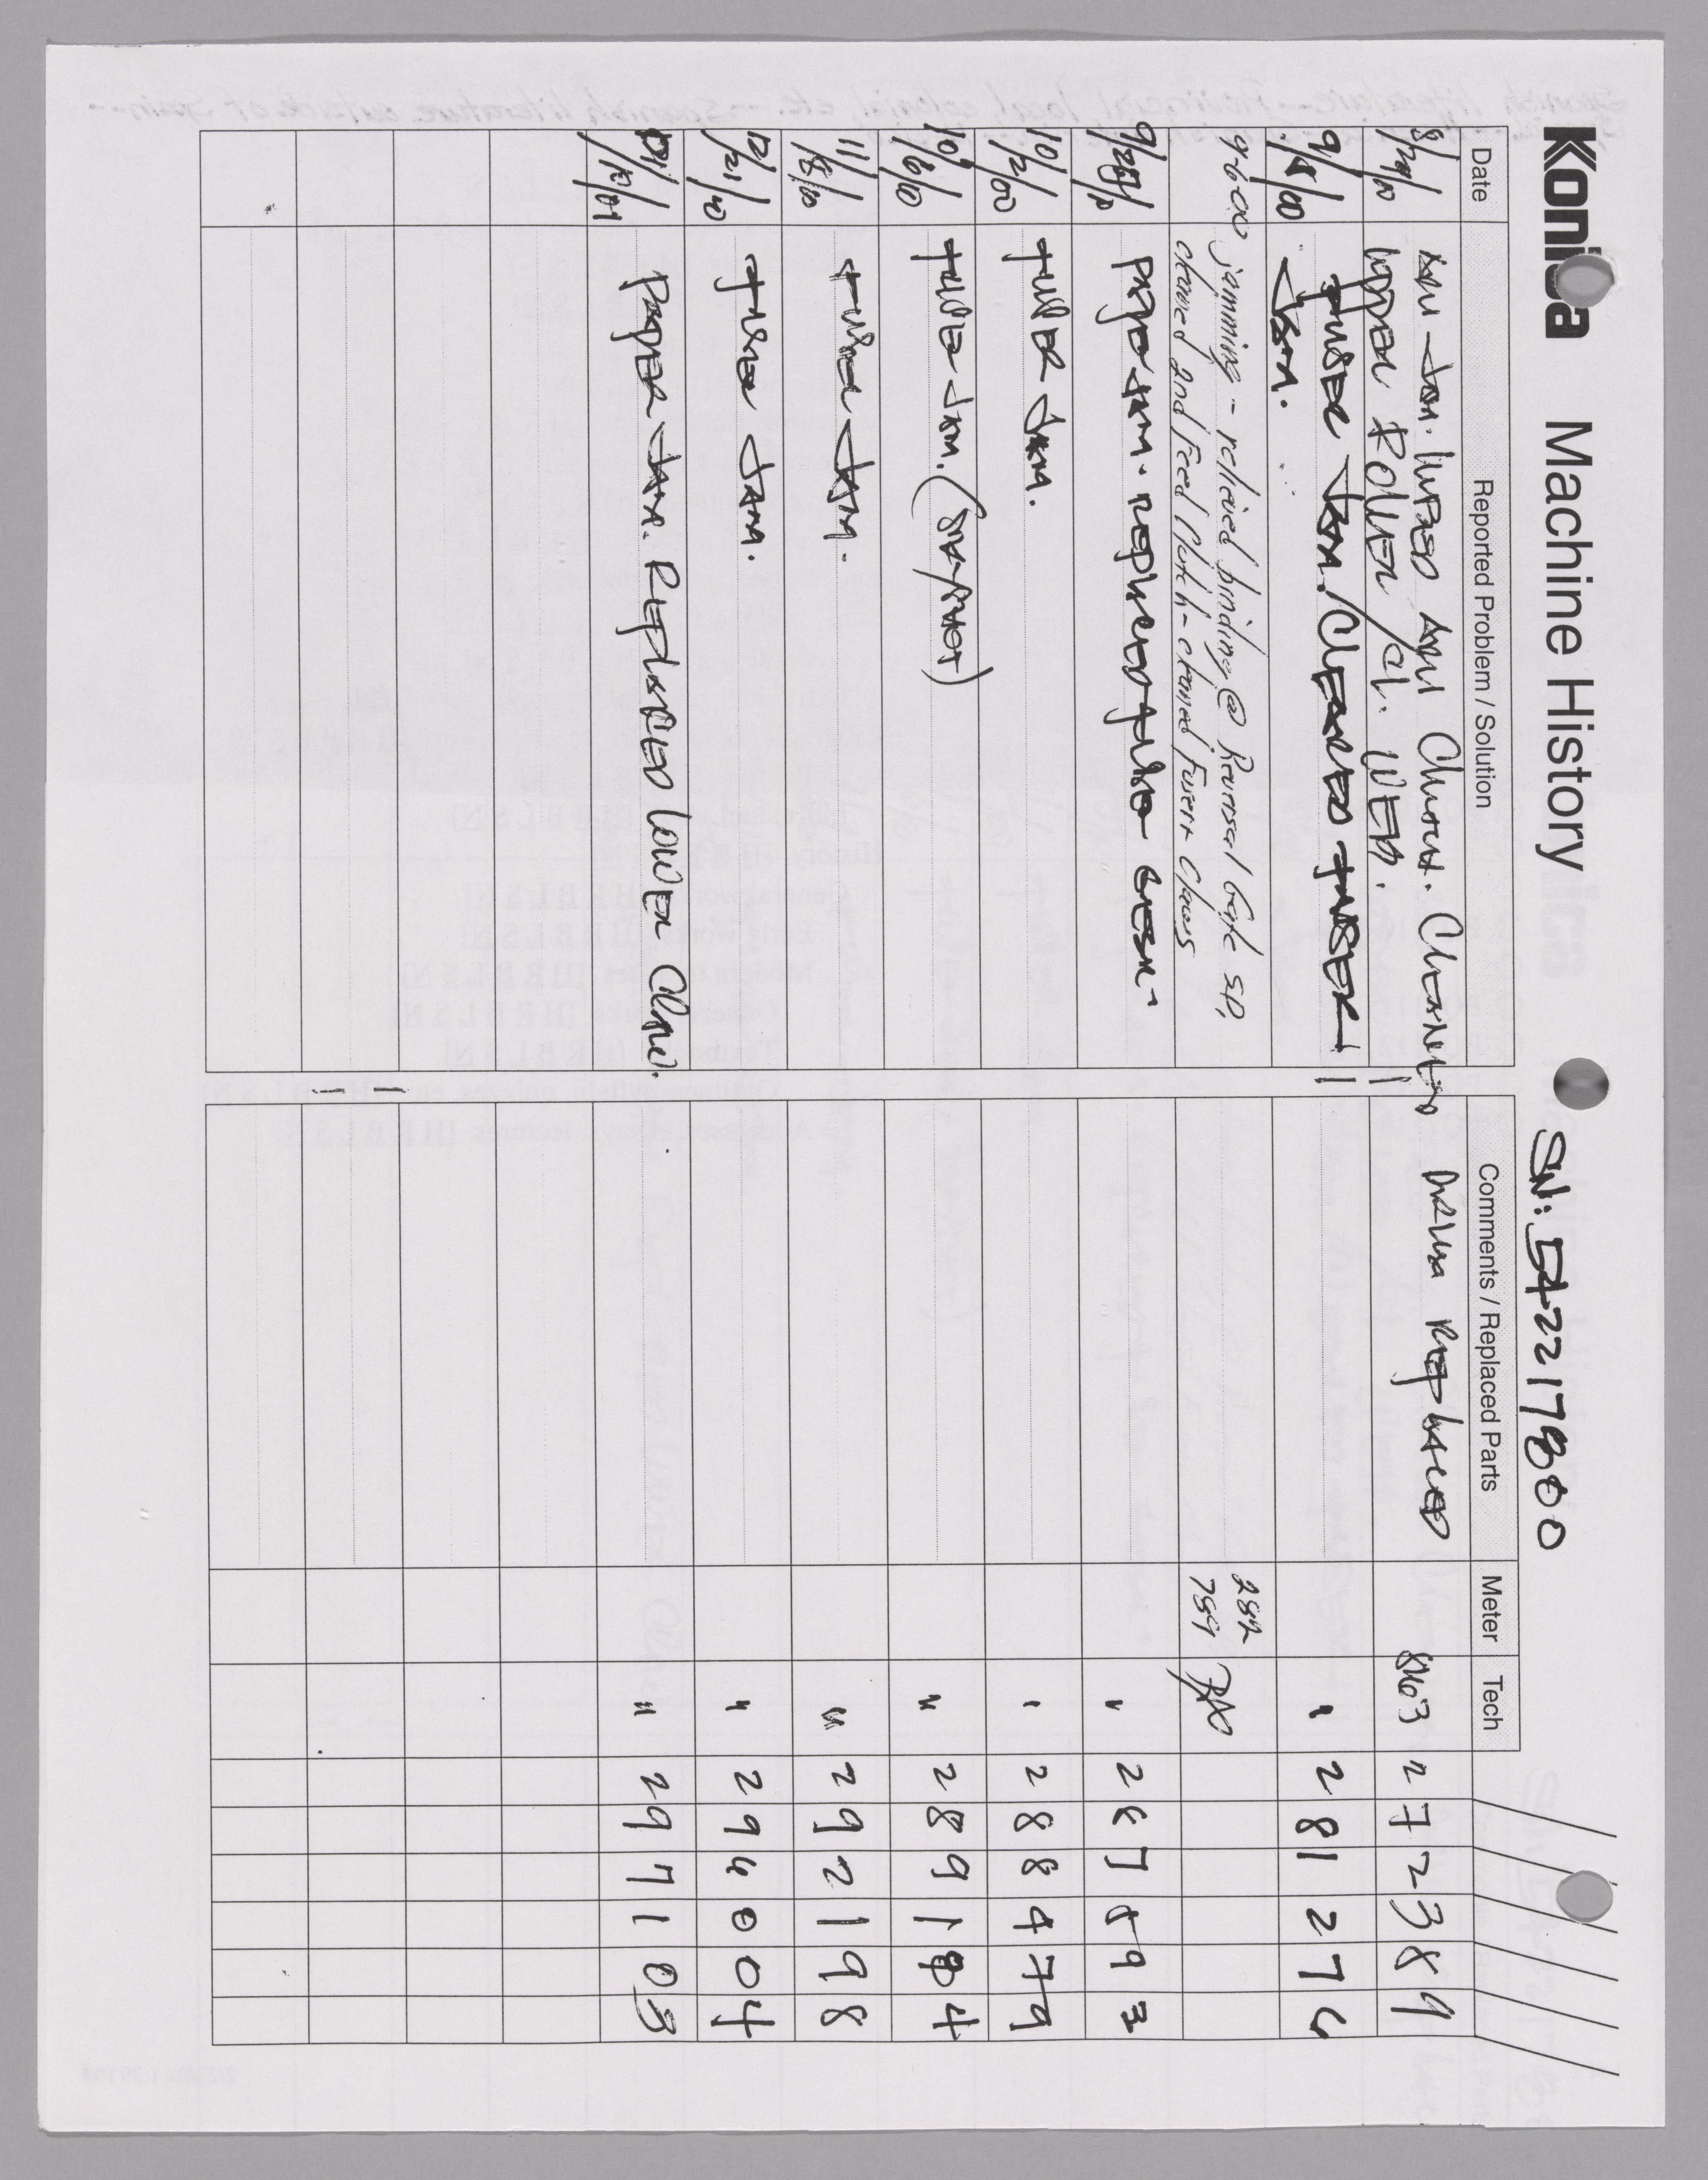 Konica Machine History SN: 542217800
Date Reported Problem / Solution Comments / Replaced Parts Meter Tech
8/29/00 ADU Jam. lubed ADU Clutch. Cleaned Drum Replaced 8163 2 7 2 3 8 9
upper Roller / cl. web.
9/15/00 fuser Jam. / Cleared fuser " 2 8 1 2 7 6
Jam.
9-6-00 jamming - relieved binding @ Reversal Gate SD, 282
cleaned 2nd feed clutch - cleaned Fuser claws 759
9/27/00 Paper Jam. replaced fuser " 2 8 7 8 9 3
10/2/00 fuser Jam. " 2 8 8 4 7 9
10/6/00 fuser Jam. " 2 8 9 1 8 4
11/8/00 fuser Jam. " 2 9 2 1 9 8
12/21/00 fuser Jam. " 2 9 6 0 0 4
01/12/01 Paper Jam. Replaced lower Claw. " 2 9 7 1 0 3